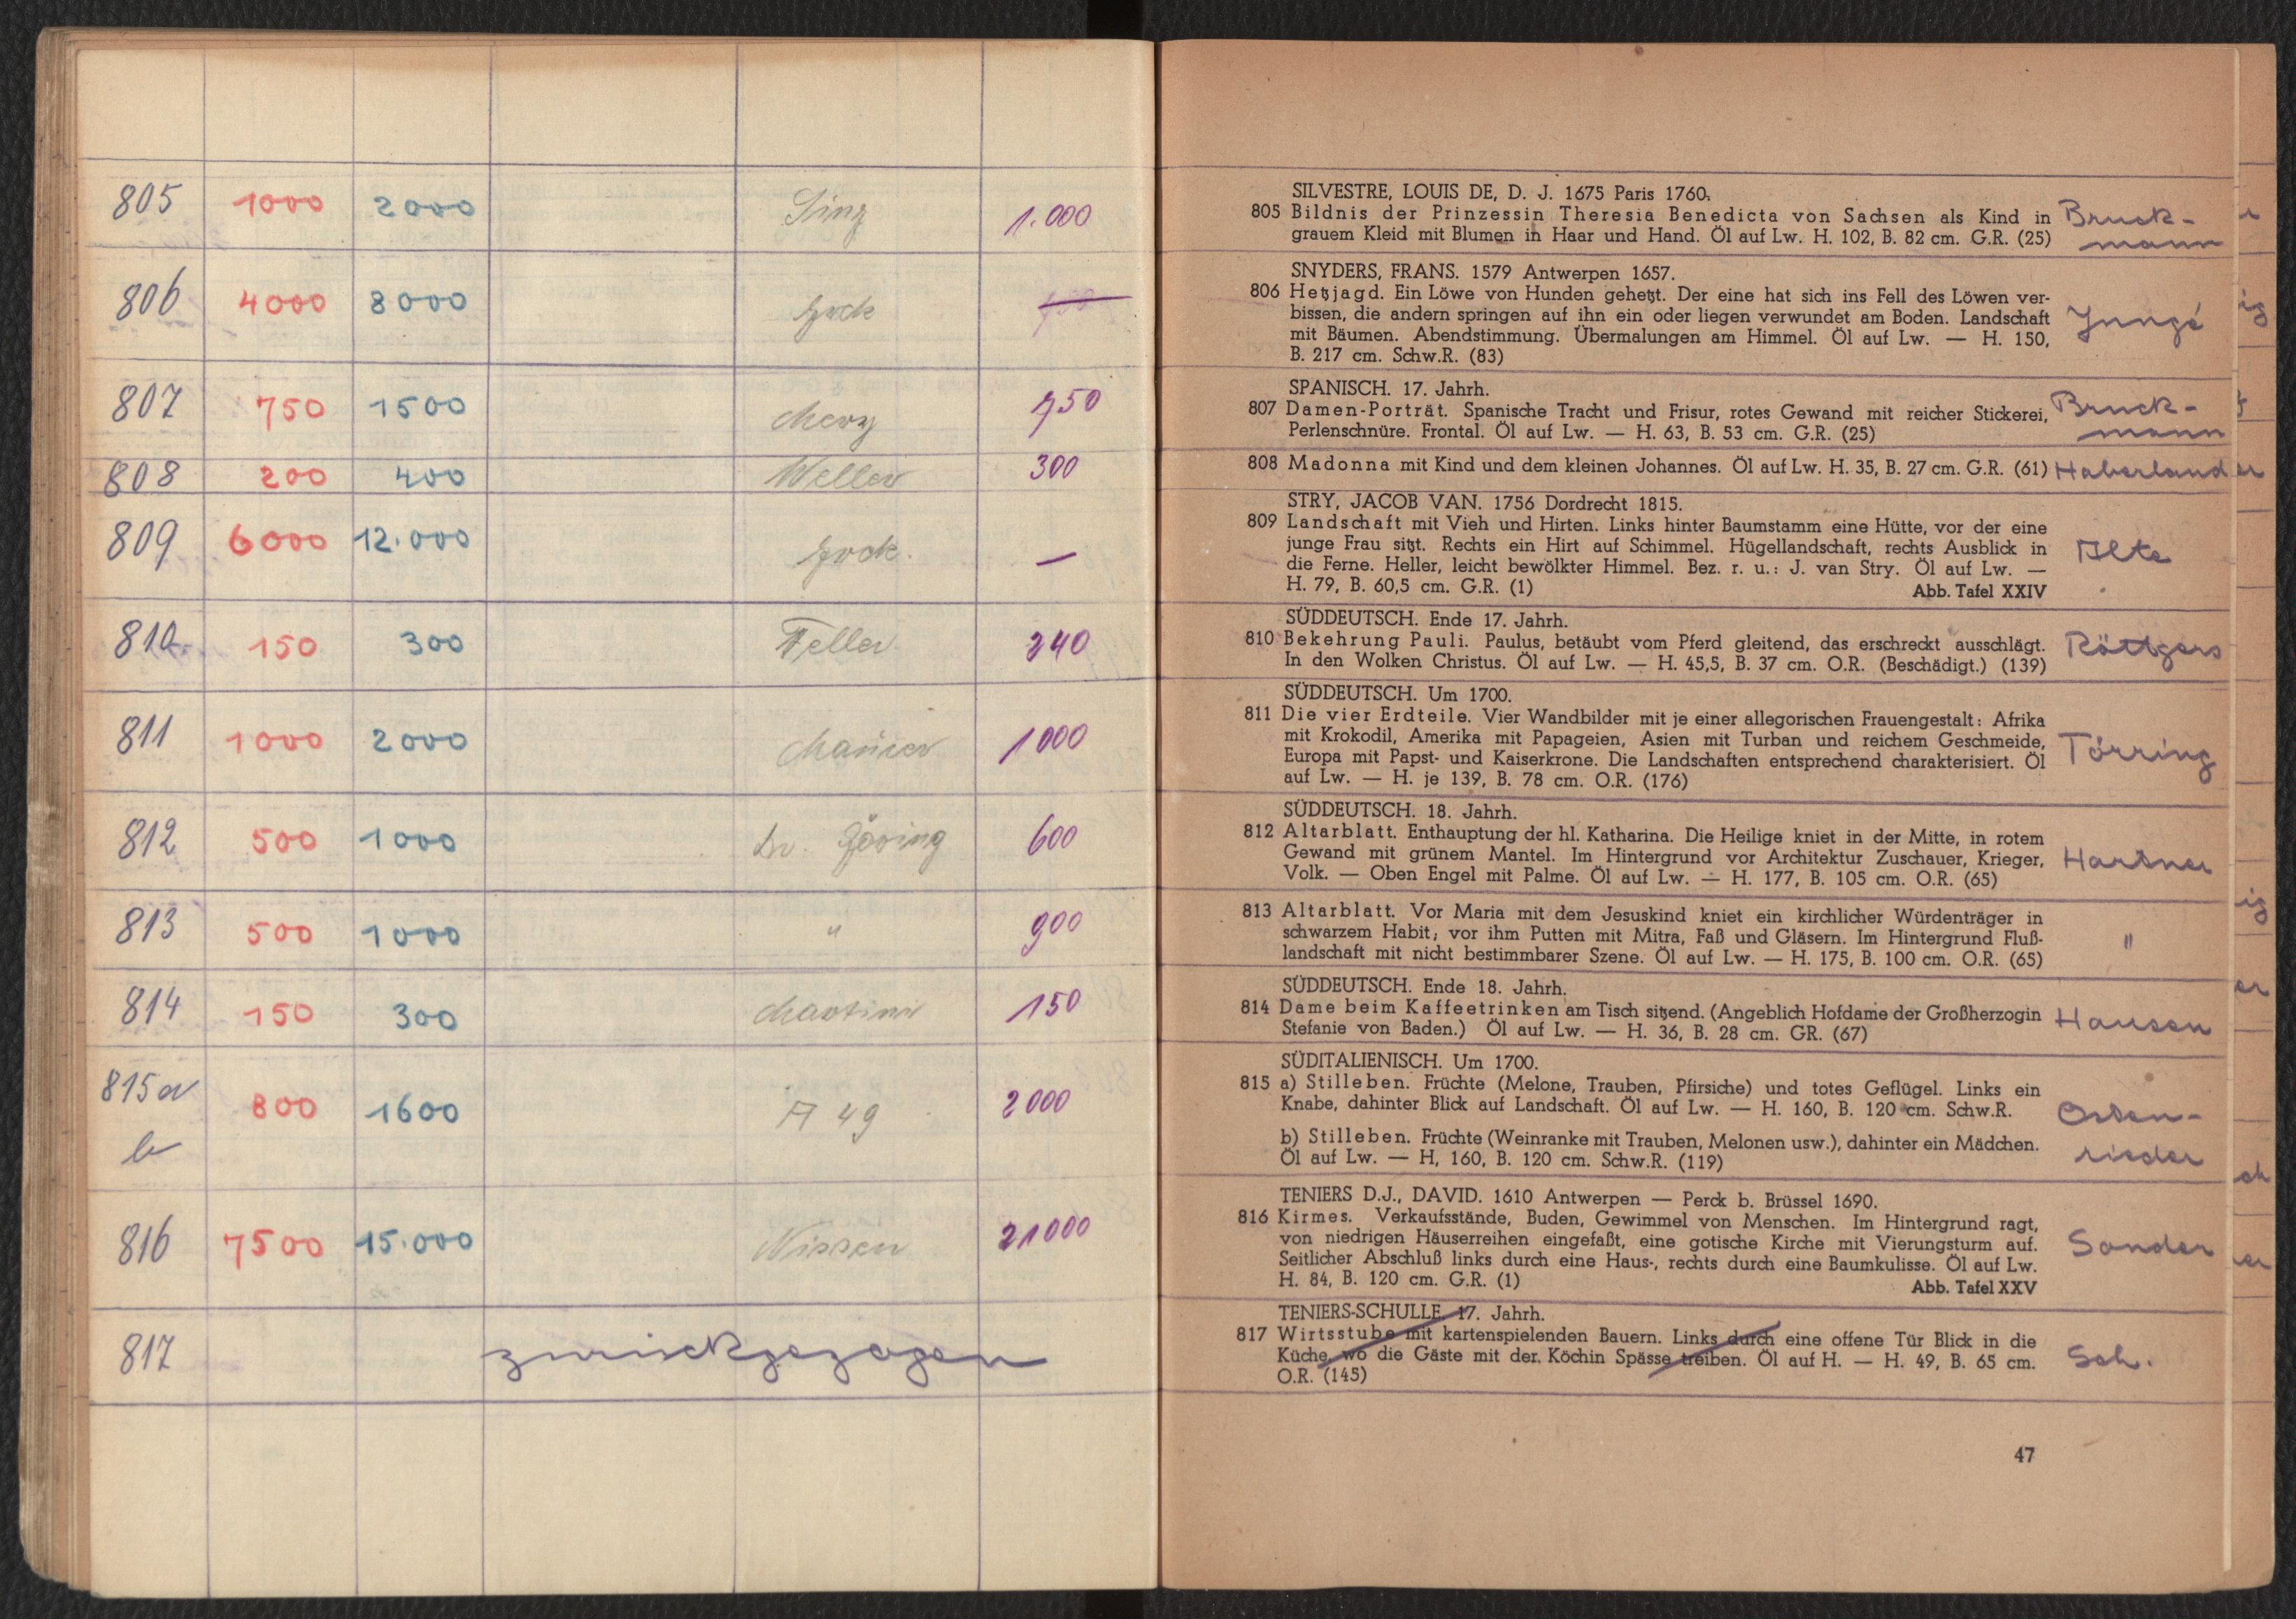 805 1000 2000 Sinz 1.000
806 4000 8000
807 750 1500 Merz 750
808 200 400 Weller 300
809 6000 12.000 —
810 150 300 Feller 240
811 1000 2000 1000
812 500 1000 Dr. Göring 600
813 500 1000 " 900
814 150 300 Martini 150
815a 800 1600 A 49 2000
b
816 7500 15.000 Nissen 21000
817 zurückgezogen
SILVESTRE, LOUIS DE, D. J. 1675 Paris 1760.
805 Bildnis der Prinzessin Theresia Benedicta von Sachsen als Kind in Bruck-
grauem Kleid mit Blumen in Haar und Hand. Öl auf Lw. H. 102, B. 82 cm. G.R. (25) mann
SNYDERS, FRANS. 1579 Antwerpen 1657.
806 Hetzjagd. Ein Löwe von Hunden gehetzt. Der eine hat sich ins Fell des Löwen ver-
bissen, die andern springen auf ihn ein oder liegen verwundet am Boden. Landschaft Jungé
mit Bäumen. Abendstimmung. Übermalungen am Himmel. Öl auf Lw. — H. 150,
B. 217 cm. Schw.R. (83)
SPANISCH. 17. Jahrh.
807 Damen-Porträt. Spanische Tracht und Frisur, rotes Gewand mit reicher Stickerei, Bruck-
Perlenschnüre. Frontal. Öl auf Lw. — H. 63, B. 53 cm. G.R. (25) mann
808 Madonna mit Kind und dem kleinen Johannes. Öl auf Lw. H. 35, B. 27 cm. G.R. (61) Haberland
STRY, JACOB VAN. 1756 Dordrecht 1815.
809 Landschaft mit Vieh und Hirten. Links hinter Baumstamm eine Hütte, vor der eine
junge Frau sitzt. Rechts ein Hirt auf Schimmel. Hügellandschaft, rechts Ausblick in Alte
die Ferne. Heller, leicht bewölkter Himmel. Bez. r. u.: J. van Stry. Öl auf Lw. —
H. 79, B. 60,5 cm. G.R. (1) Abb. Tafel XXIV
SÜDDEUTSCH. Ende 17. Jahrh.
810 Bekehrung Pauli. Paulus, betäubt vom Pferd gleitend, das erschreckt ausschlägt. Röttgers
In den Wolken Christus. Öl auf Lw. — H. 45,5, B. 37 cm. O.R. (Beschädigt.) (139)
SÜDDEUTSCH. Um 1700.
811 Die vier Erdteile. Vier Wandbilder mit je einer allegorischen Frauengestalt: Afrika
mit Krokodil, Amerika mit Papageien, Asien mit Turban und reichem Geschmeide, Törring
Europa mit Papst- und Kaiserkrone. Die Landschaften entsprechend charakterisiert. Öl
auf Lw. — H. je 139, B. 78 cm. O.R. (176)
SÜDDEUTSCH. 18. Jahrh.
812 Altarblatt. Enthauptung der hl. Katharina. Die Heilige kniet in der Mitte, in rotem
Gewand mit grünem Mantel. Im Hintergrund vor Architektur Zuschauer, Krieger, Hartner
Volk. — Oben Engel mit Palme. Öl auf Lw. — H. 177, B. 105 cm. O.R. (65)
813 Altarblatt. Vor Maria mit dem Jesuskind kniet ein kirchlicher Würdenträger in
schwarzem Habit; vor ihm Putten mit Mitra, Faß und Gläsern. Im Hintergrund Fluß- "
landschaft mit nicht bestimmbarer Szene. Öl auf Lw. — H. 175, B. 100 cm. O.R. (65)
SÜDDEUTSCH. Ende 18. Jahrh.
814 Dame beim Kaffeetrinken am Tisch sitzend. (Angeblich Hofdame der Großherzogin Hausen
Stefanie von Baden.) Öl auf Lw. — H. 36, B. 28 cm. GR. (67)
SÜDITALIENISCH. Um 1700.
815 a) Stilleben. Früchte (Melone, Trauben, Pfirsiche) und totes Geflügel. Links ein
Knabe, dahinter Blick auf Landschaft. Öl auf Lw. — H. 160, B. 120 cm. Schw.R. Osten-
b) Stilleben. Früchte (Weinranke mit Trauben, Melonen usw.), dahinter ein Mädchen. rieder
Öl auf Lw. — H, 160, B. 120 cm. Schw.R. (119)
TENIERS D.J., DAVID. 1610 Antwerpen — Perck b. Brüssel 1690.
816 Kirmes. Verkaufsstände, Buden, Gewimmel von Menschen. Im Hintergrund ragt,
von niedrigen Häuserreihen eingefaßt, eine gotische Kirche mit Vierungsturm auf. Sander
Seitlicher Abschluß links durch eine Haus-, rechts durch eine Baumkulisse. Öl auf Lw.
H. 84, B. 120 cm. G.R. (1) Abb. Tafel XXV
TENIERS-SCHULLE. 17. Jahrh.
817 Wirtsstube mit kartenspielenden Bauern. Links durch eine offene Tür Blick in die
Küche, wo die Gäste mit der. Köchin Spässe treiben. Öl auf H. — H. 49, B. 65 cm. Sch.
O.R. (145)
47